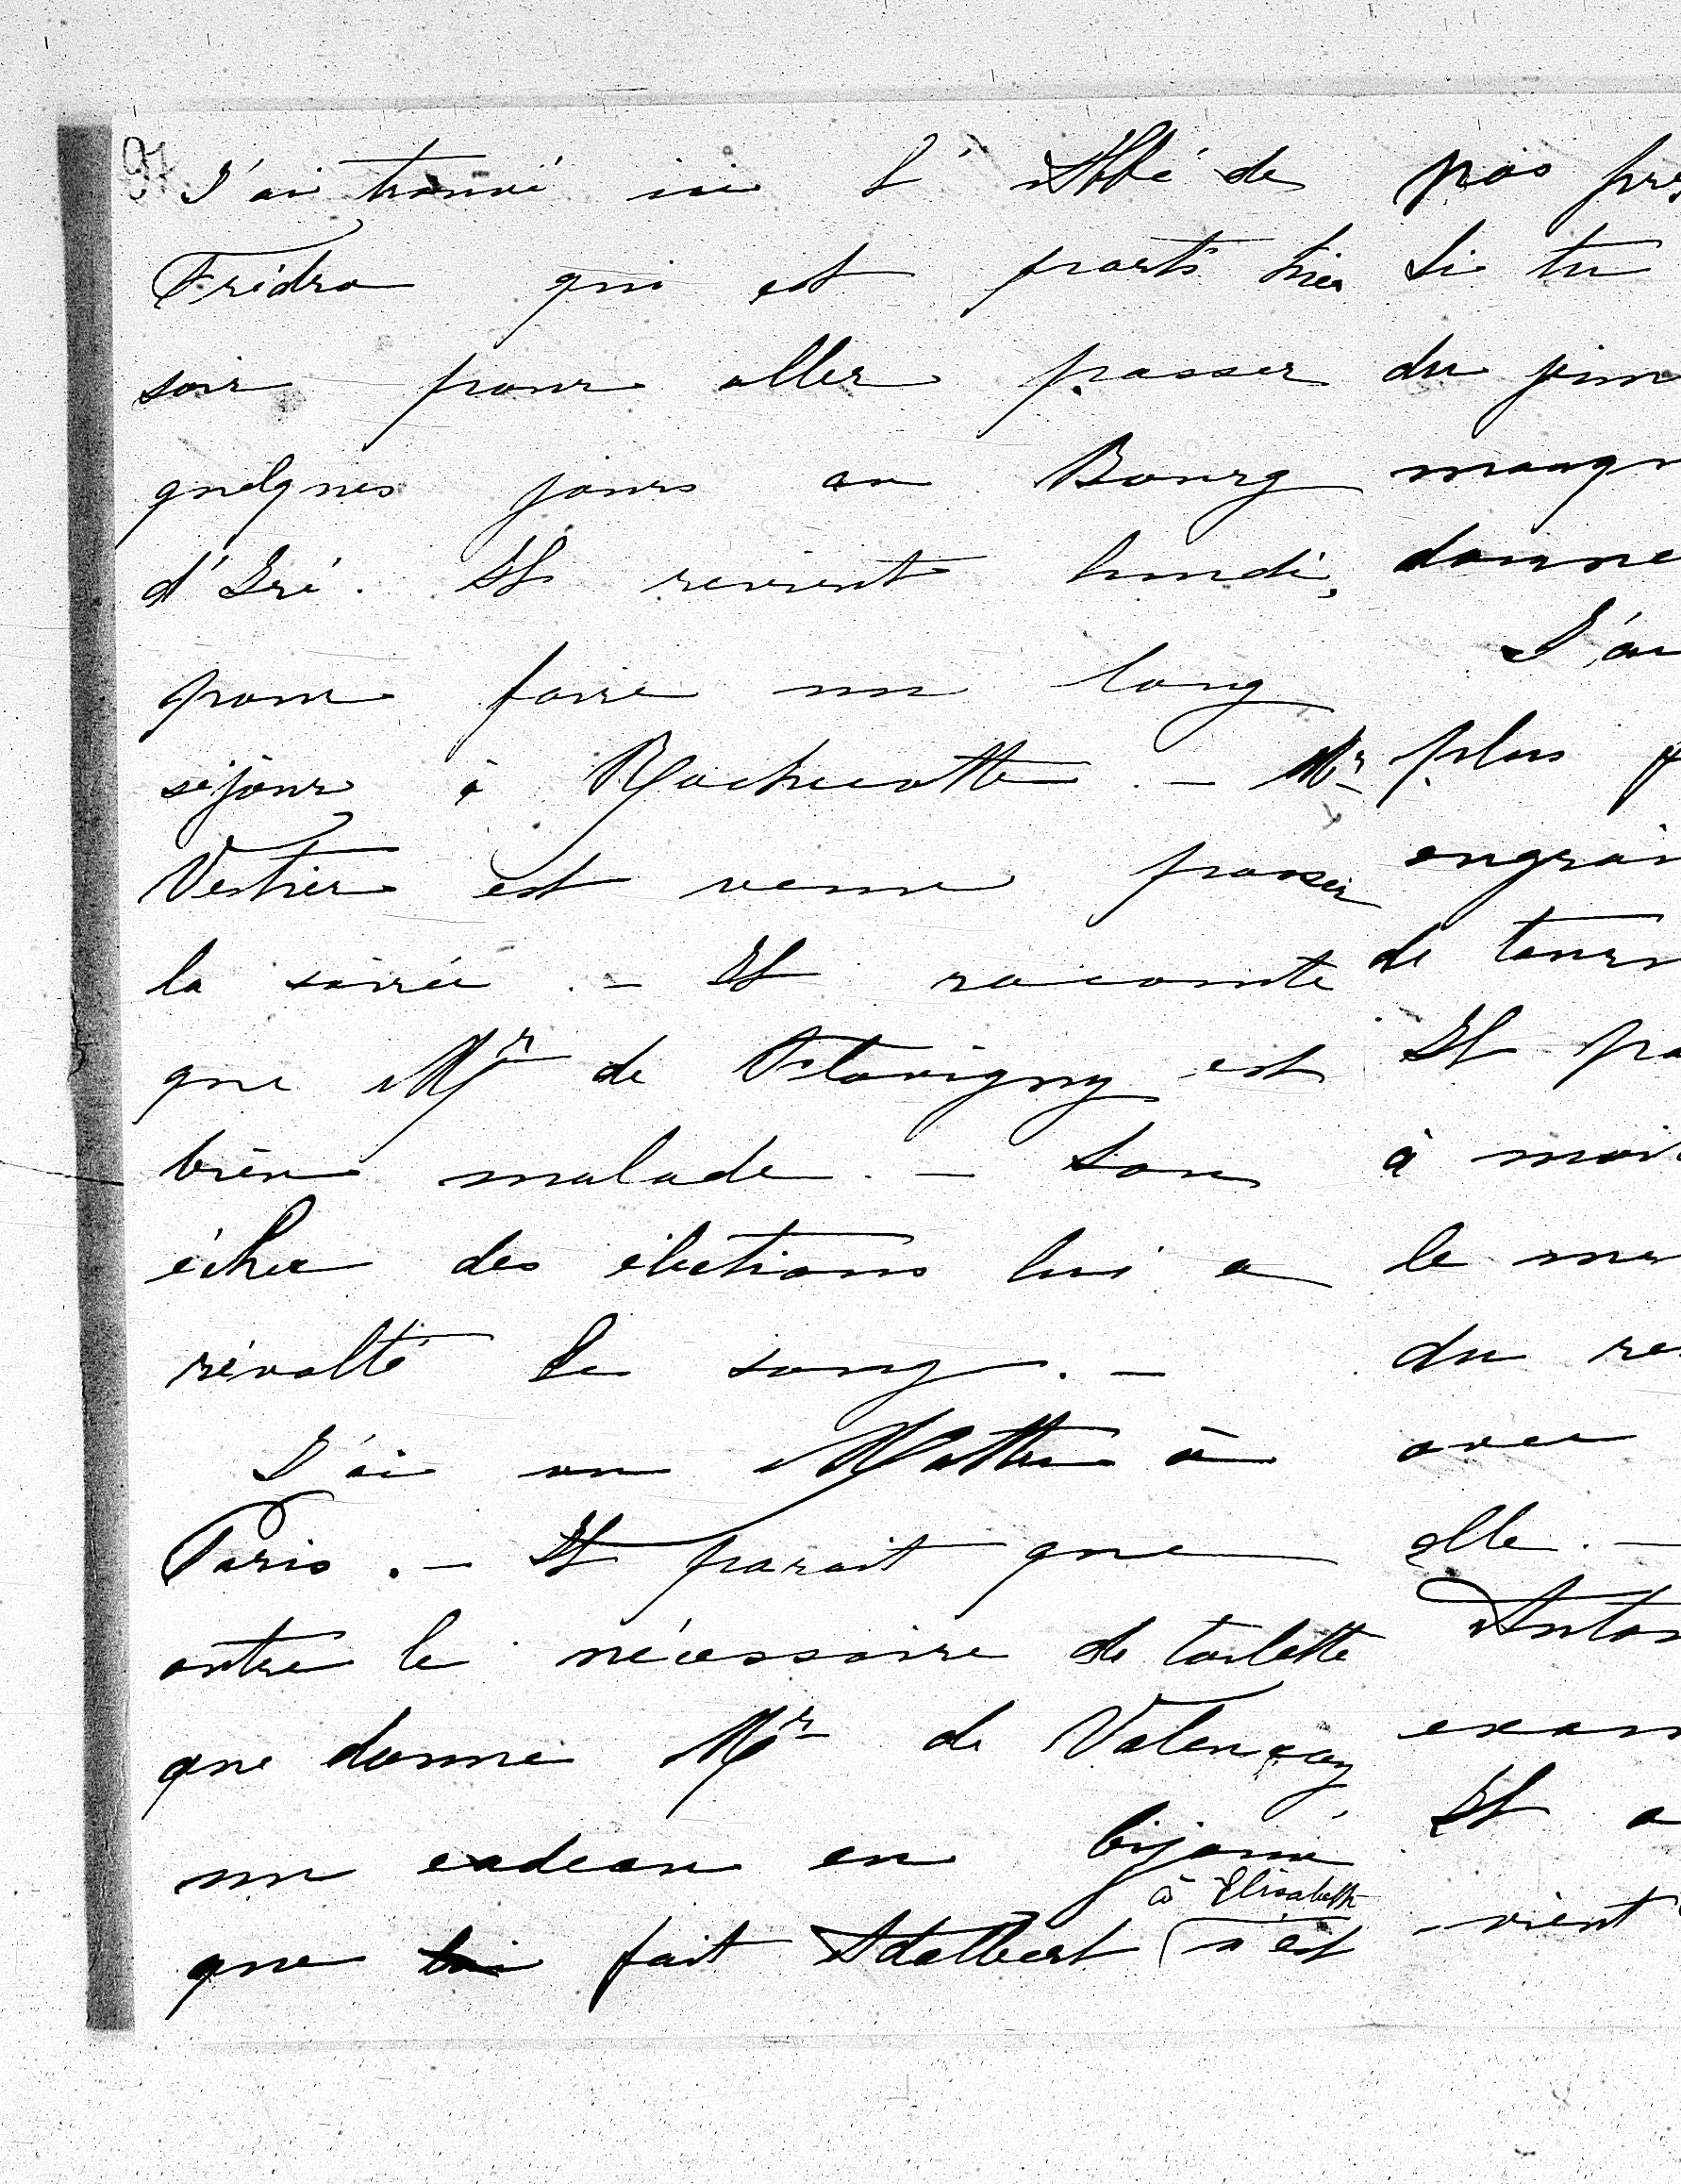 97
J'ai trouvé ici l'Abbé de
Frédro qui est parti hier
soir pour aller passer
quelques jours au Bourg
d'Iré. Il revient lundi,
pour faire un long
séjour à Rochecotte. – Mr
Vestier est venu passer
la soirée. – Il raconte
que Mr de Flavigny est
bien malade. – Son
échec des élections lui a
révolté le sang. –
J'ai vu à
Paris. – Il parait que
outre le nécessaire de toilette
que donne Mr de Valençay,
un cadeau en bijoux
à Elisabeth
que lui fait Adalbert n'est
pas pre
Si tu
du
donne
J'ai
plus
de tour
Il pa
à moi
le me
du re
avec
elle. –
Anton
exam
Il a
vient